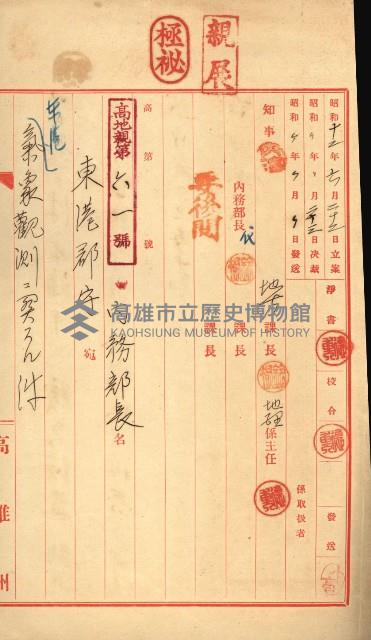 極祕
親展
昭和十二年七月二十三日立案
昭和〃年〃月二三日決裁
昭和〃年〃月〃日發送
淨書
校合
發送
知事
地 課長
地理係主任
係取扱者
內務部長 代
課長
課長
要後閲
高第 號
高地親第六一號
東港郡守 宛
內務部長 名
東港
氣象觀測ニ関スル件
高雄州
高雄市立歷史博物館
KAOHSIUNG MUSEUM OF HISTORY